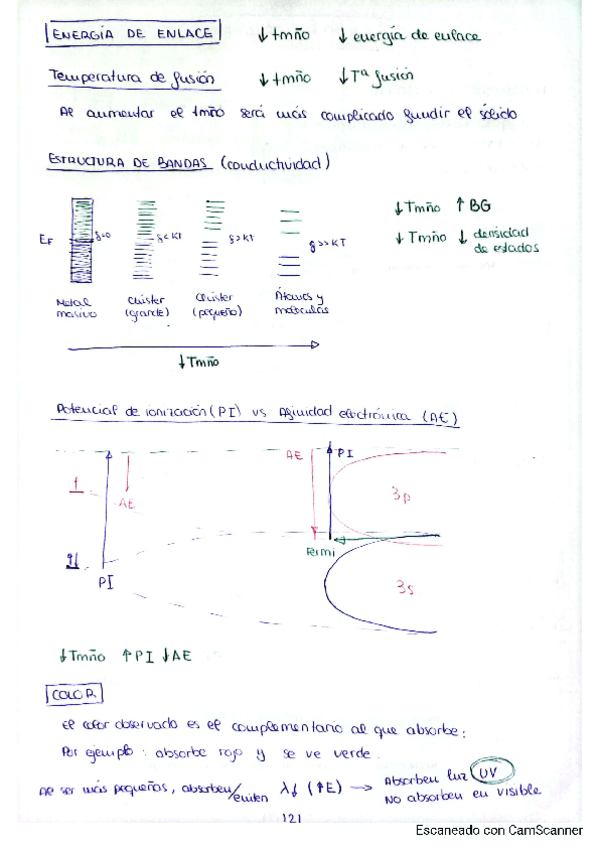 ENERGÍA DE ENLACE ↓tmño ↓ energía de enlace
Temperatura de fusión ↓tmño ↓Tª fusión
Al aumentar el tmño será más complicado fundir el sólido
ESTRUCTURA DE BANDAS (conductividad)
↓Tmño ↑BG
EF g=0 g<KT g>KT g>>KT
↓Tmño ↓ densidad de estados
Metal masivo
Clúster (grande)
Clúster (pequeño)
Átomos y moléculas
↓Tmño
Potencial de ionización (PI) vs Afinidad electrónica (AE)
AE PI
1
AE
3p
Fermi
PI
3s
↓Tmño ↑PI ↓AE
COLOR
El color observado es el complementario al que absorbe:
Por ejemplo: absorbe rojo y se ve verde.
Al ser más pequeños, absorben/emiten λ↓ (↑E) → Absorben luz UV
No absorben en visible
121
Escaneado con CamScanner